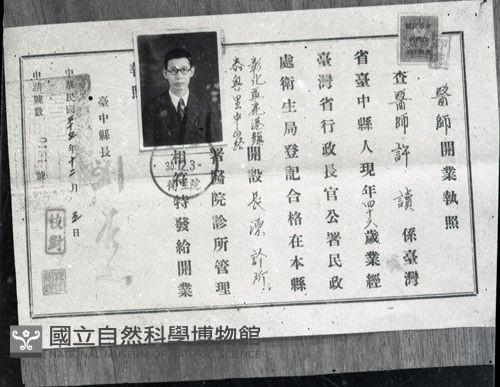 醫師開業執照
查醫師許讀係臺灣
省臺中縣人現年四十六歲業經
臺灣省行政長官公署民政
處衛生局登記合格在本縣
彰化區鹿港鎮
泰興里中山路
開設長源診所
署醫院診所管理
相符特發給開業
執照
臺中縣長
中華民國卅五年十二月五日
申請號數
號
校對
國立自然科學博物館
NATIONAL MUSEUM OF NATURAL SCIENCE